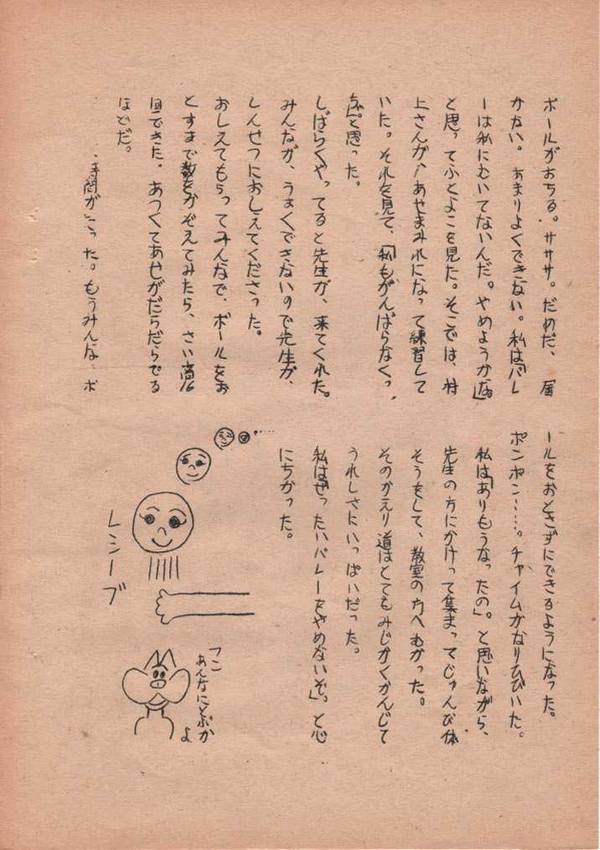 ボールがおちる。サササ。だめだ、届
かない。あまりよくできない。私は「バレ
ーは私にむいてないんだ。やめようかな。」
と思ってふとよこを見た。そこでは、村
上さんが、あやまみれになって練習して
いた。それを見て、「私もがんばらなくっ
ちゃ」と思った。
しばらくやってると先生が、来てくれた。
みんなが、うまくできないので先生が、
しんせつにおしえてくださった。
おしえてもらってみんなで、ボールをお
とすまで数をかぞえてみたら、さい高16
回できた。あつくてあせがだらだらでる
ほどだ。
時間がたった。もうみんな、ボ
ールをおとさずにできるようになった。
ポンポン……。チャイムがなりひびいた。
私は「ありもうなったの」。と思いながら、
先生の方にかけって集まってじゅんび体
そうをして、教室の方へむかった。
そのかえり道はとてもみじかくかんじて
うれしさにいっぱいだった。
私は「ぜったいバレーをやめないぞ」。と心
にちかった。
レシーブ
フン
あんなにとぶか
よ